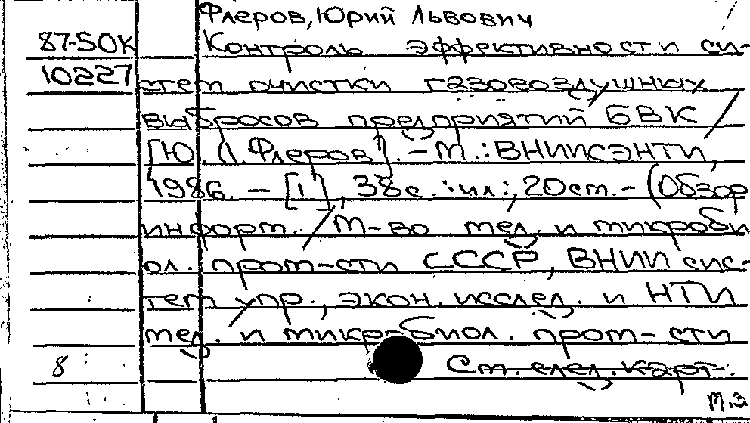 Флеров, Юрий Львович
87-50К Контроль эффективности си-
10227 стем очистки газовоздушных
выбросов предприятий БВК /
[Ю. Л. Флеров]. - М.: ВНИИСЭНТИ,
1986. - [1], 38с. : ил.; 20см. - (Обзор
информ. / М-во мед. и микроби
ол. пром-сти СССР, ВНИИ сис-
тем упр., экон. исслед. и НТИ
мед. и микробиол. пром-сти
8 См. след. карт.
М.З